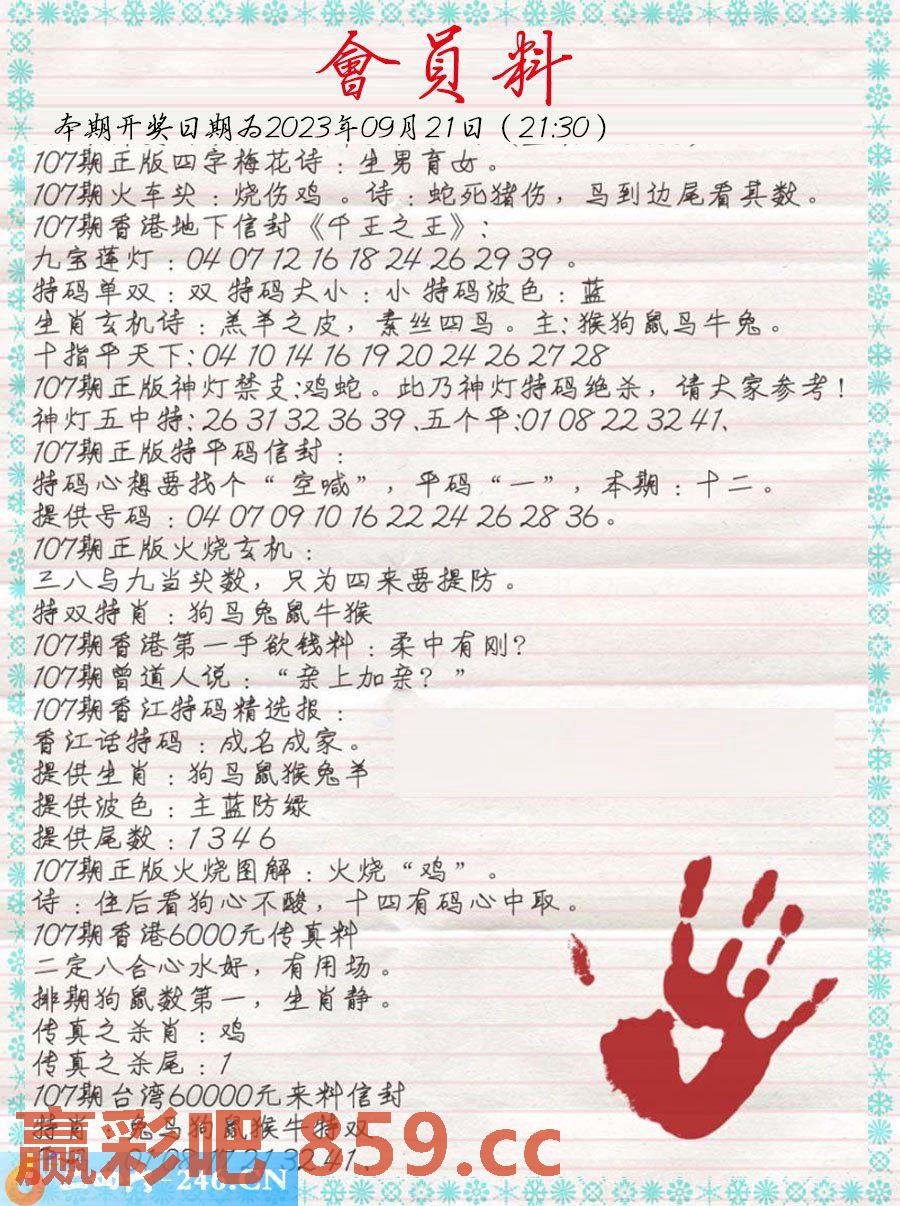 會員料
本期开奖日期为2023年09月21日（21:30）
107期正版四字梅花诗：生男育女。
107期火车头：烧伤鸡 。诗：蛇死猪伤，鸟到边尾看其数。
107期香港地下信封《千王之王》：
九宝莲灯：04 07 12 16 18 24 26 29 39 。
特码单双：双 特码大小：小 特码波色：蓝
生肖玄机诗：羔羊之皮，素丝四鸟。主：猴狗鼠鸟牛兔。
十指平天下：04 10 14 16 19 20 24 26 27 28
107期正版神灯禁支:鸡蛇。此乃神灯特码绝杀，请大家参考！
神灯五中特：26 31 32 36 39 、五个平:01 08 22 32 41、
107期正版特平码信封：
特码心想要找个“ 空喊”，平码“一”，本期：十二。
提供号码：04 07 09 10 16 22 24 26 28 36。
107期正版火烧玄机：
三八与九当头数，只为四来要提防。
特双特肖：狗鸟兔鼠牛猴
107期香港第一手欲钱料：柔中有刚？
107期曾道人说：“亲上加亲？”
107期香江特码精选报：
香江话特码：成名成家。
提供生肖：狗鸟鼠猴兔羊
提供波色：主蓝防绿
提供尾数：1 3 4 6
107期正版火烧图解：火烧“鸡”。
诗：住后看狗心不酸，十四有码心中取。
107期香港6000元传真料
二定八合心水好，有用场。
排期狗鼠数第一，生肖静。
传真之杀肖：鸡
传真之杀尾：1
107期台湾60000元来料信封
特肖：兔鸟狗鼠猴牛特双
21 32 41、
赢彩吧 859.cc
-246.CN